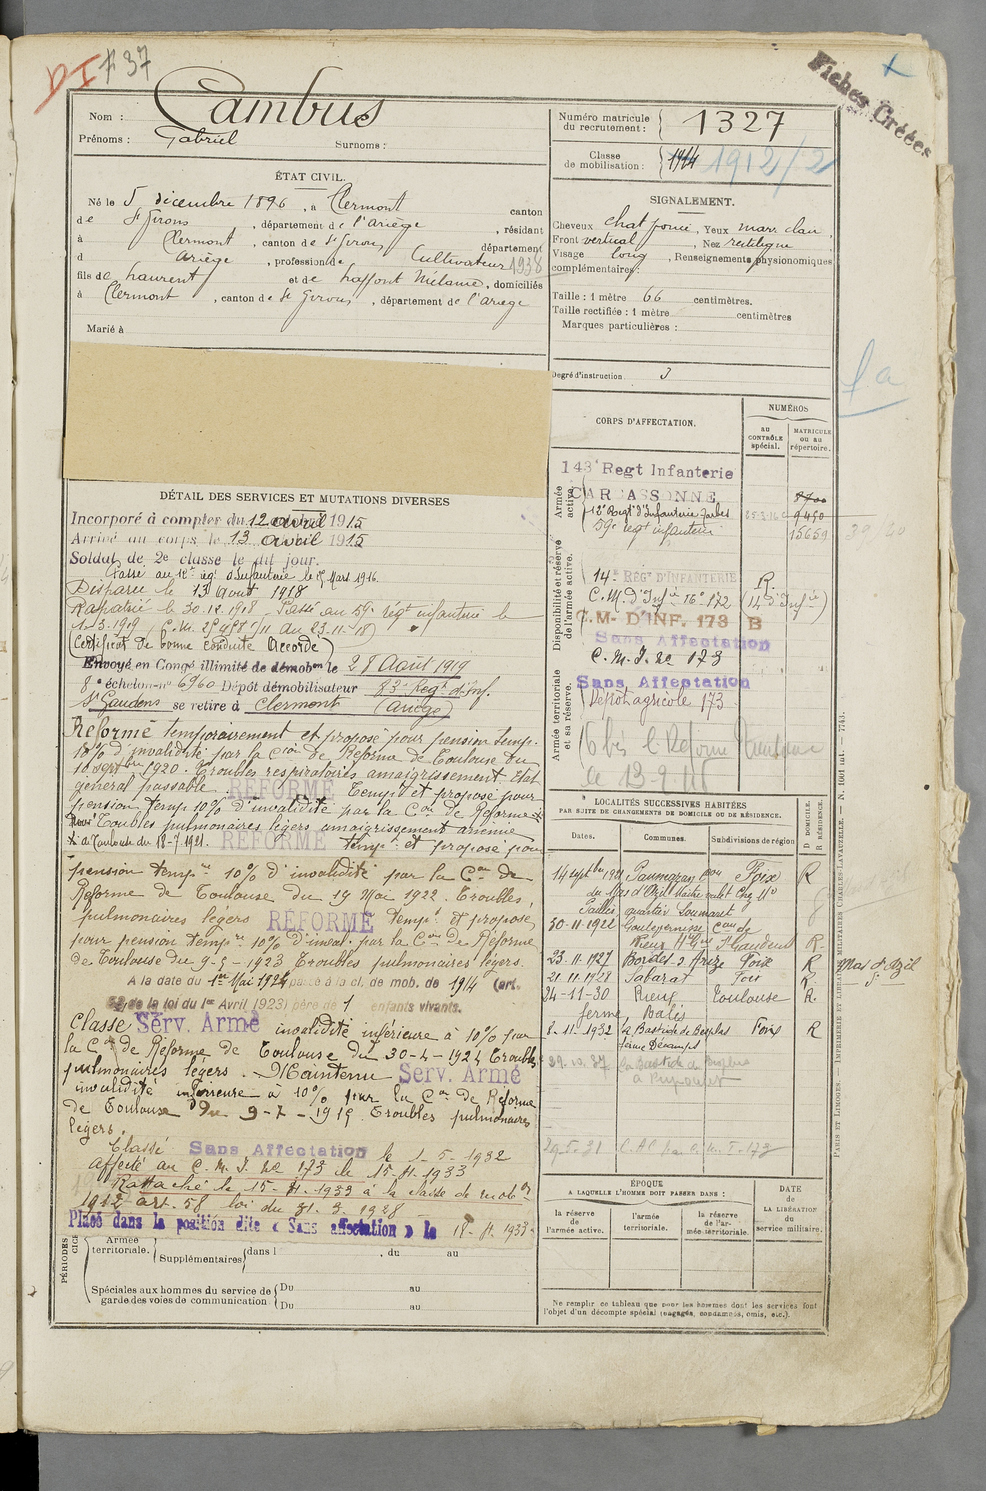 DI F 37
Fiches Créées
Nom : Cambus
Prénoms : Gabriel Surnoms :
Numéro matricule du recrutement : 1327
Classe de mobilisation : 1914 1912/2
ÉTAT CIVIL.
Né le 5 décembre 1896, à Clermont canton
de St Girons, département de l'Ariège, résidant
à Clermont, canton de St Girons département
d Ariège, profession de Cultivateur 1938
fils de Laurent et de Laffont Mélanie, domiciliés
à Clermont, canton de St Girons, département de l'Ariège
Marié à
SIGNALEMENT.
Cheveux chat foncé, Yeux marr clair,
Front vertical, Nez rectiligne
Visage long, Renseignements physionomiques
complémentaires :
Taille : 1 mètre 66 centimètres.
Taille rectifiée : 1 mètre centimètres
Marques particulières :
Degré d'instruction 3
la
DÉTAIL DES SERVICES ET MUTATIONS DIVERSES
Incorporé à compter du 12 avril 1915
Arrivé au corps le 13 avril 1915
Soldat de 2e classe le dit jour.
Passé au 12e régt d'Infanterie le Mars 1916.
Disparu le 13 août 1918
Rapatrié le 30.12.1918 Passé au 59e régt infanterie le
1-3-1919 (C.M. du 23-11-18)
(Certificat de bonne conduite Accordé)
Envoyé en Congé illimité de démobon le 28 Août 1919
8e échelon no 6960 Dépôt démobilisateur 83e Regt d'Inf.
St Gaudens se retire à Clermont (Ariège)
Réformé temporairement et proposé pour pension temp.
10% d'invalidité par la Cion de Réforme de Toulouse du
10 septbre 1920. Troubles respiratoires amaigrissement. Etat
général passable. RÉFORMÉ Tempt et proposé pour
pension temp 10% d'invalidité par la Con de Réforme x
Troubles pulmonaires légers amaigrissement anémie
x de Toulouse du 18-7-1921. RÉFORMÉ tempt et proposé pour
pension tempre 10% d'invalidité par la Con de
Réforme de Toulouse du 19 Mai 1922. Troubles
pulmonaires légers RÉFORMÉ Tempt et proposé
pour pension tempre 10% d'inval. par la Con de Réforme
de Toulouse du 9-5-1923 Troubles pulmonaires légers.
A la date du 1er Mai 1924 passé à la cl. de mob. de 1914 (art.
58 de la loi du 1er Avril 1923) père de 1 enfants vivants.
Classé Serv. Armé invalidité inférieure à 10% par
la Con de Réforme de Toulouse du 30-4-1924 Troubles
pulmonaires légers. Maintenu Serv. Armé
invalidité inférieure à 10% par la Con de Réforme
de Toulouse Du 9-7- Troubles pulmonaires
légers.
Classé Sans Affectation le 1-5-1932
affecté au C.M.I. no 173 le 15-11-1933
Rattaché le 15-11-1933 à la classe de mobon
1912 art. 58 loi du 31.3.1928
Placé dans la position dite « Sans affectation » le 18-11-1933
PÉRIODES
Armée territoriale.
Supplémentaires dans l , du au
Spéciales aux hommes du service de garde des voies de communication
Du au
Du au
CORPS D'AFFECTATION.
NUMÉROS
AU CONTRÔLE spécial.
MATRICULE OU AU répertoire.
Armée active.
143e Regt Infanterie
CARCASSONNE
12e Regt d'Infanterie Tarbes 9450
59e regt infanterie 15659
39/40
Disponibilité et réserve de l'armée active.
14e REGt D'INFANTERIE R.
C.M. d'Infie 16e 172 (14 d'Infie)
C.M- D'INF. 173 B
Sans Affectation
C.M.I. no 173
Armée territoriale et sa réserve.
Sans Affectation
Dépôt agricole 173
LOCALITÉS SUCCESSIVES HABITÉES
PAR SUITE DE CHANGEMENTS DE DOMICILE OU DE RÉSIDENCE.
Dates. Communes. Subdivisions de région
D DOMICILE. R RÉSIDENCE.
14 septbre 1921 Foix R
du Mas d'Azil
30-11-1922 Goutevernisse Con de
Rieux Hte Gne St Gaudens R.
23.11.1927 Bordes s Arize Foix R Mas d'Azil
21.11.1928 Sabarat Foix R.
24-11-30 Rieux Toulouse R.
ferme Balès
8-11-1932 la Bastide de Besplas Foix R
39.10.37 La Bastide de Besplas
29.5.31
ÉPOQUE
A LAQUELLE L'HOMME DOIT PASSER DANS :
la réserve de l'armée active.
l'armée territoriale.
la réserve de l'armée territoriale.
DATE de LA LIBÉRATION du service militaire.
Ne remplir ce tableau que pour les hommes dont les services font
l'objet d'un décompte spécial (engagés, condamnés, omis, etc.).
PARIS ET LIMOGES. — IMPRIMERIE ET LIBRAIRIE MILITAIRES CHARLES-LAVAUZELLE. — 7743.